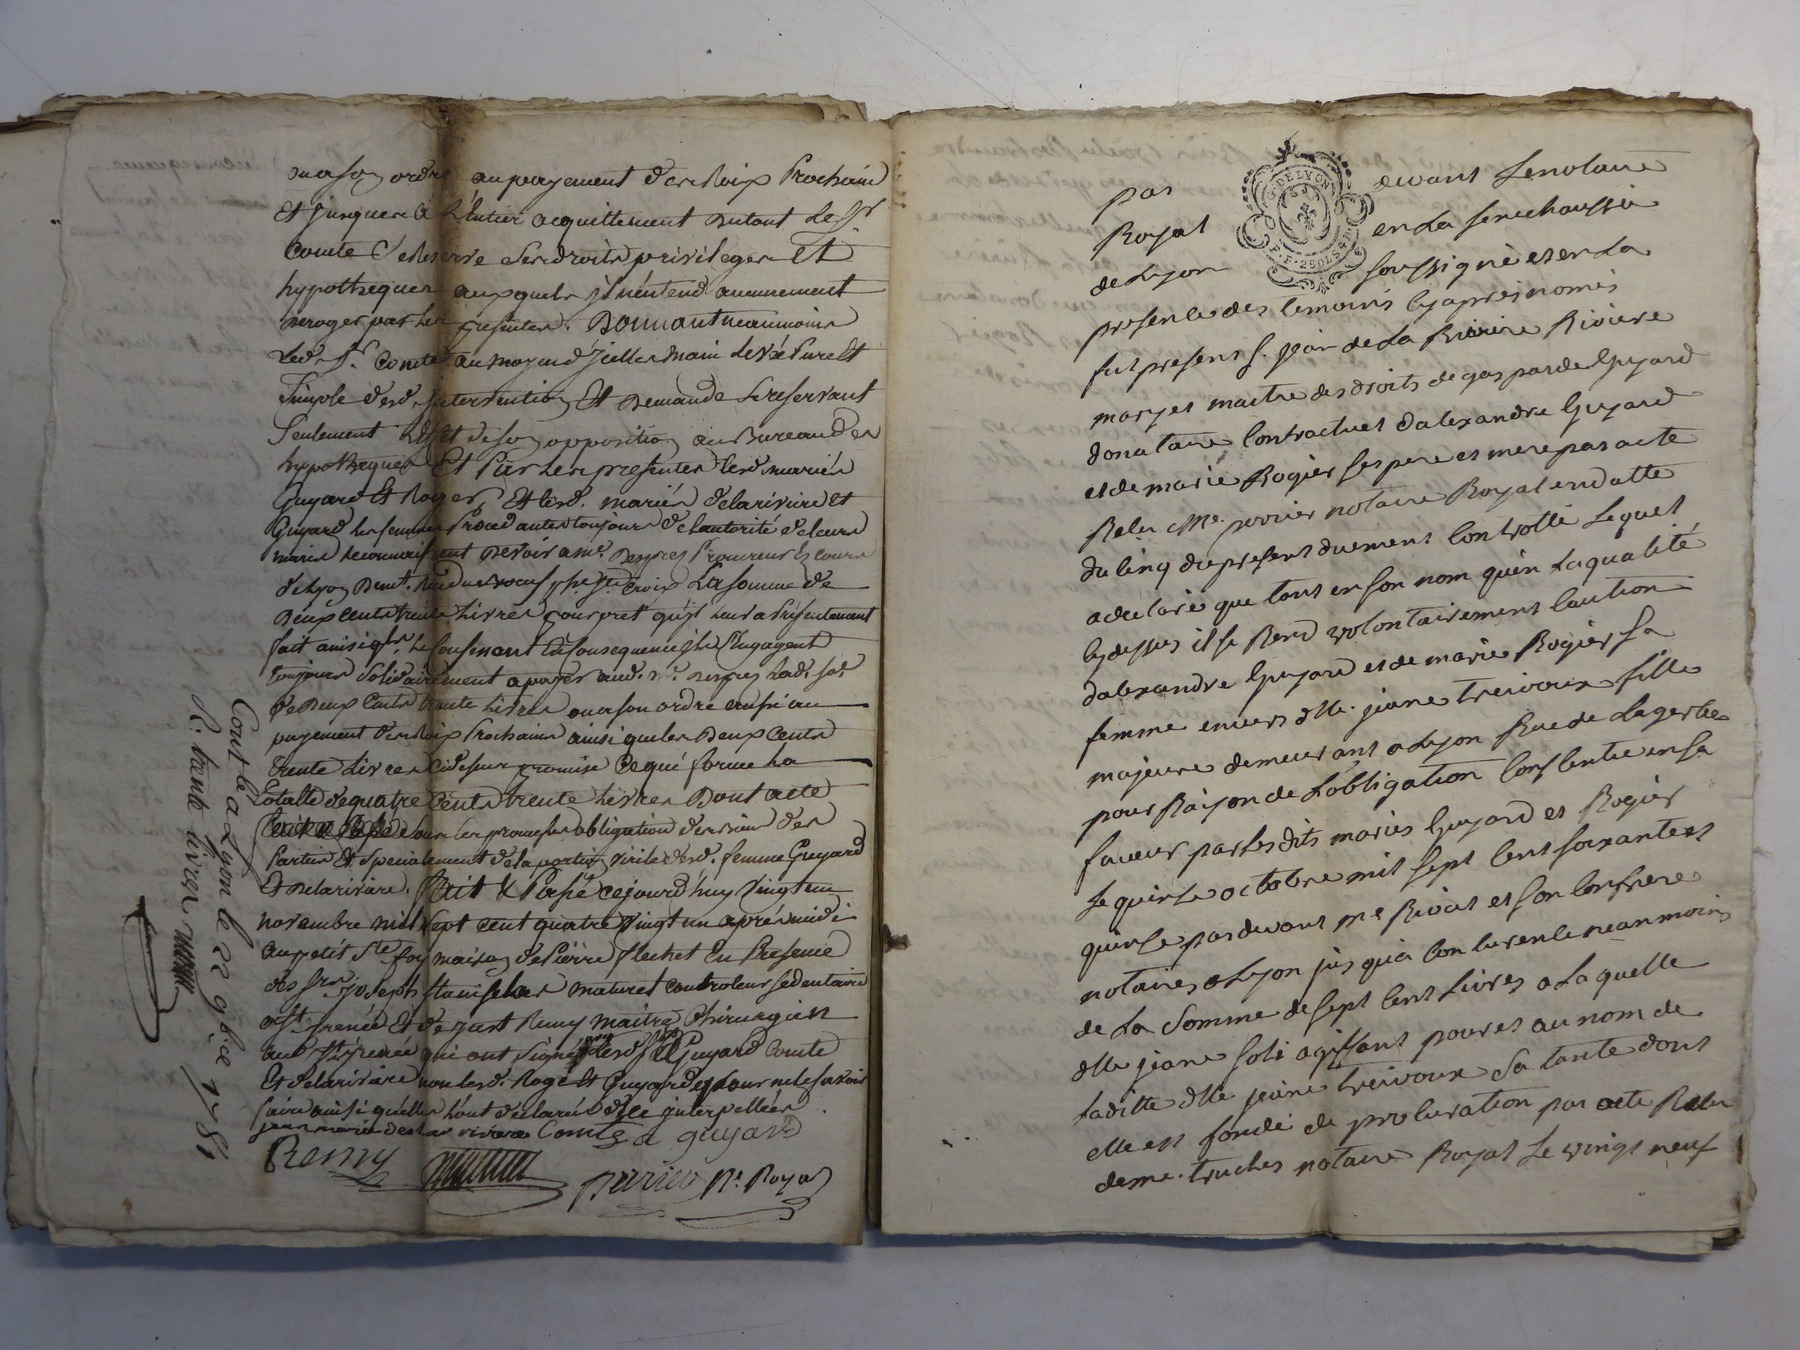 ou a son ordre au payement des Roix Prochain
Et jusques a L'entier acquittement du tout Le Sr
Comte Se Reserve Ses droits privileges Et
hypotheques auxquels il n'entend aucunement
deroger par Les presentes. Donnant neanmoins
Led. Sr. Comte au moyen d'Icelles Main Levée Pure Et
Simple desd. Intervention Et demande Se reservant
Seulement L'Effet de son opposition au Bureau des
hypotheques Et Par Les presentes Lesd. mariés
Guyard Et Roger Et lesd. mariés delarivire et
Guyard les femmes Procedantes toujours de L'autorité de Leurs
maris reconnoissent devoir a me. Procureur Es cours
de Lyon Ste. Croix La Somme de
Deux Cents trente Livres pour pret qu'il Leur a Présentement
fait ainsi Le Confessent En Consequence ils S'Engagent
toujours Solidairement a payer aud. Me. Lad. Se
de Deux Cents trente Livres ou a son ordre aussi au
payement des Roix Prochains ainsi que les Deux Cents
trente Livres Cidessus promise Ce qui forme La
Totalle de quatre Cents trente Livres Dont acte
Sous les promesses obligation des biens des
Parties Et Specialement de la portion virile desd. femme Guyard
Et delarivire. Fait & Passé cejourd'huy Vingt un
novembre mil Sept cent quatre Vingt un après midi
au petit Ste. foy maison de Pierre flechet En Presence
des Srs. joseph Stanislas maturet Controleur Sedentaire
a St. Irenée Et de Just Remy Maitre Chirurgien
aud. St. Irenée qui ont Signé avec lesd. Srs Guyard Comte
Et delarivire non lesd. Roger Et Guyard pour ne le savoir
faire ainsi qu'elles L'ont déclaré de ce interpellées
jean marie de la riviere Comte a guyard
Remy
perrier Nre. Royal
Contlé a Lyon le 22 9bre 1781
R. trente livres
par devant Le notaire
Royal en La Senechaussée
de Lyon Soussigné et en La
G. DE LYON
P.F. 2 SOLS 4 D.
presence des temoins cy après només
fut present S. jean de La Rivire Riviere
maryer maitre des droits de gaspardes Guyard
donataire Contractuel d'alexandre Guyard
et de marie Rogier ses pere et mere par acte
Relu Me. perrier notaire Royal en datte
du Cinq du present duement Controllé Lequel
a declaré que tant en son nom qu'en La qualité
cy dessus il se Rend volontairement Caution
d'alexandre Guyard et de marie Rogier sa
femme envers dlle. jeane treivoux fille
majeure demeurant a Lyon Rue de Lagerbe
pour Raison de L'obligation Consentie en sa
faveur par Les dits mariés Guyard et Rogier
Le quinze octobre mil sept cent soixante et
quinze par devant Me. Rivat et son Confrere
notaires a Lyon jusqu'a Concurence neanmoins
de La Somme de sept cent Livres a Laquelle
dlle jeane Soli agissant pour et au nom de
Laditte dlle jeane treivoux Sa tante dont
elle est fondé de procuration par acte Relu
deme. truches notaire Royal Le vingt neuf